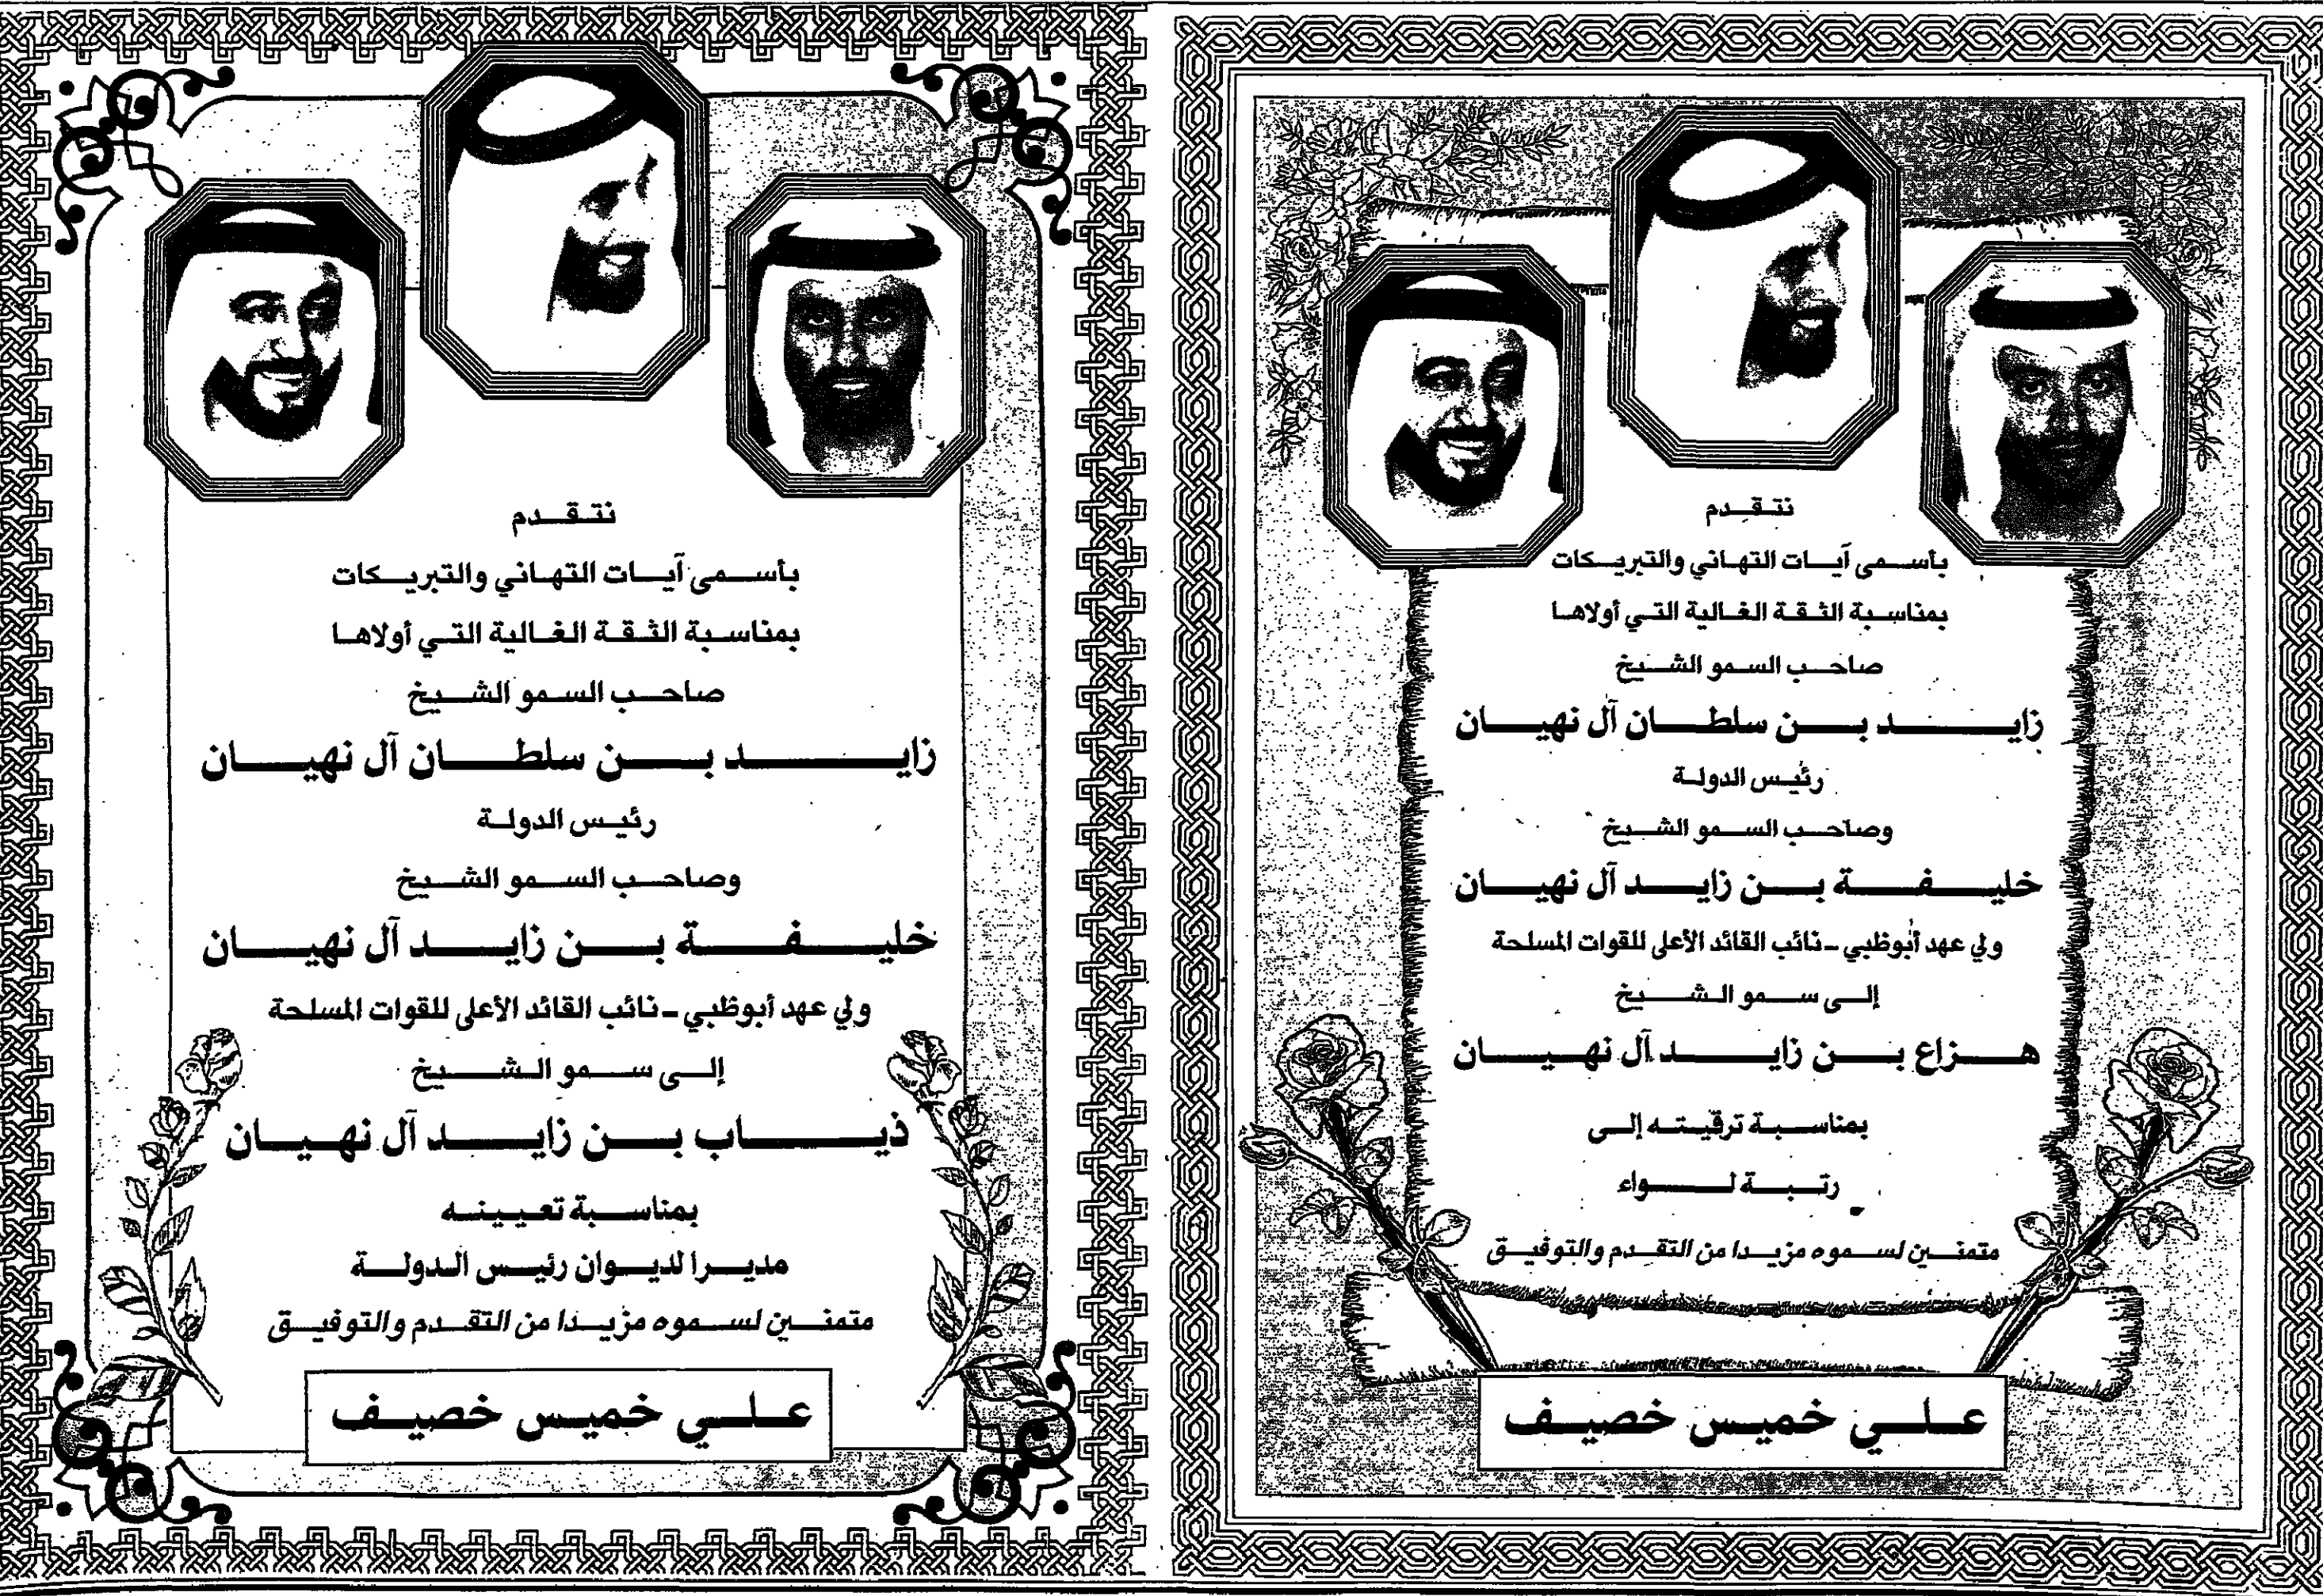 نتقدم
بأسمى آيات التهاني والتبريكات
بمناسبة الثقة الغالية التي أولاها
صاحب السمو الشيخ
زايد بن سلطان آل نهيان
رئيس الدولة
وصاحب السمو الشيخ
خليفة بن زايد آل نهيان
ولي عهد أبوظبي - نائب القائد الأعلى للقوات المسلحة
إلى سمو الشيخ
هزاع بن زايد آل نهيان
بمناسبة ترقيته إلى
رتبة لواء
متمنين لسموه مزيدا من التقدم والتوفيق
علي خميس خصيف
نتقدم
بأسمى آيات التهاني والتبريكات
بمناسبة الثقة الغالية التي أولاها
صاحب السمو الشيخ
زايد بن سلطان آل نهيان
رئيس الدولة
وصاحب السمو الشيخ
خليفة بن زايد آل نهيان
ولي عهد أبوظبي - نائب القائد الأعلى للقوات المسلحة
إلى سمو الشيخ
ذياب بن زايد آل نهيان
بمناسبة تعيينه
مديرا لديوان رئيس الدولة
متمنين لسموه مزيدا من التقدم والتوفيق
علي خميس خصيف